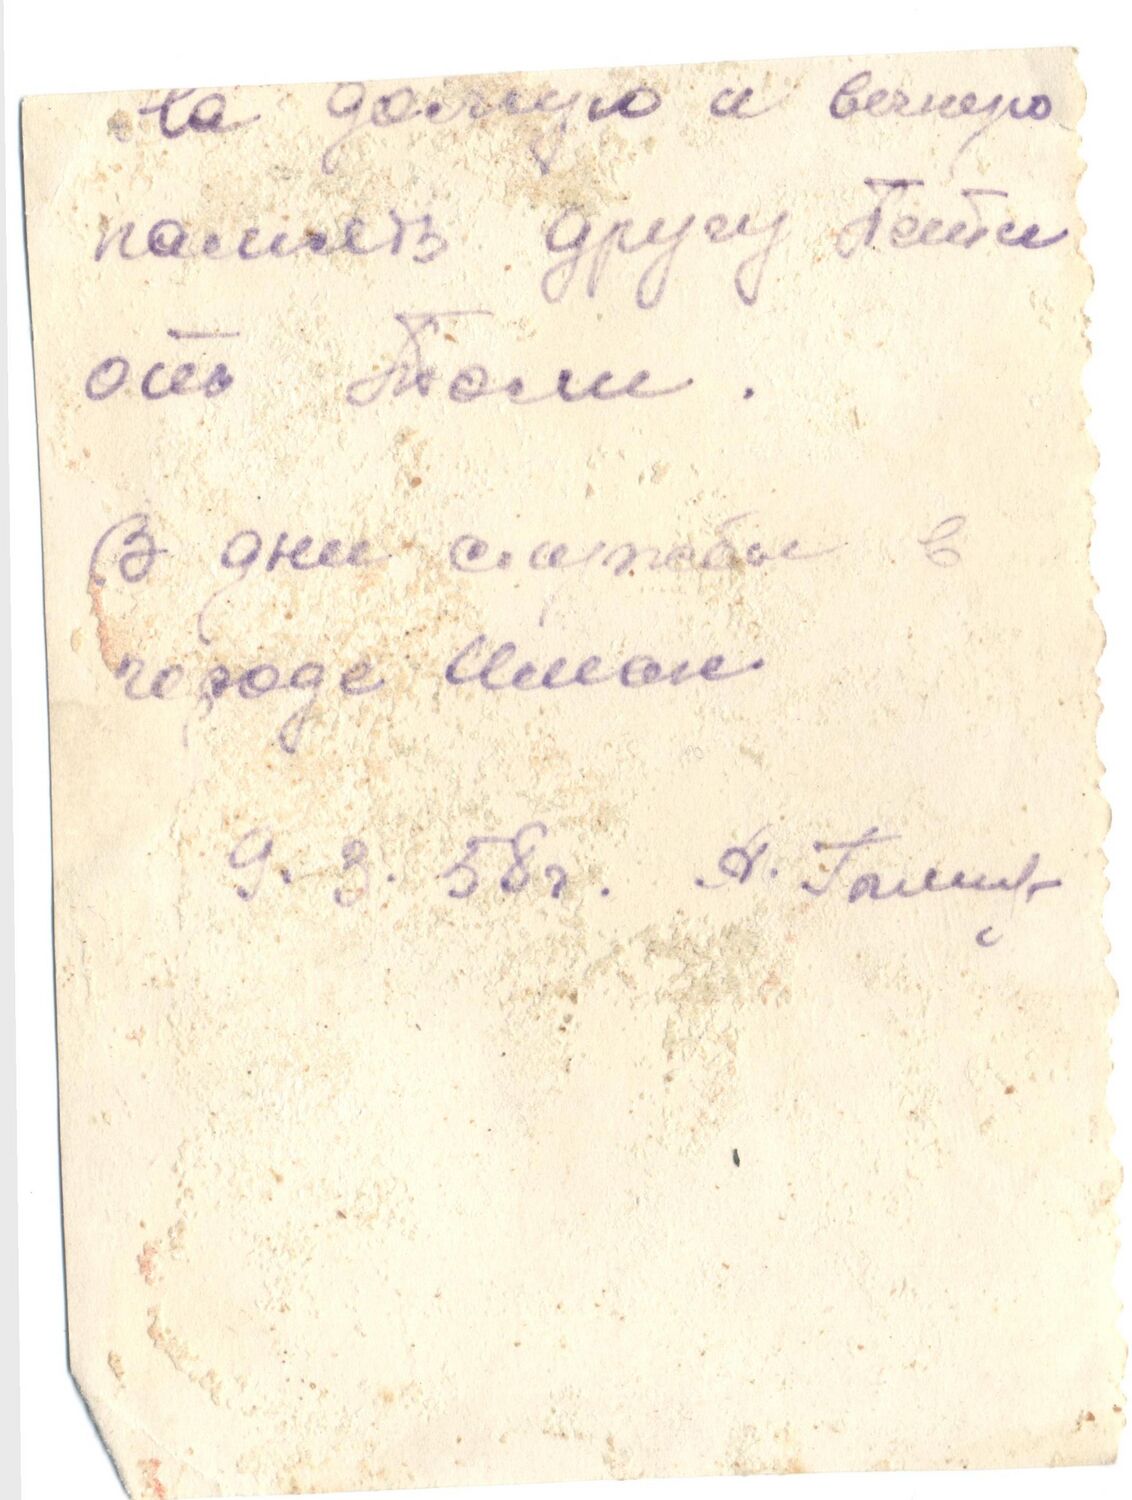 На долгую и вечную
память другу Пети
отъ Толи.
В дни службы в
городе Иман
9. 3. 58 г. А.